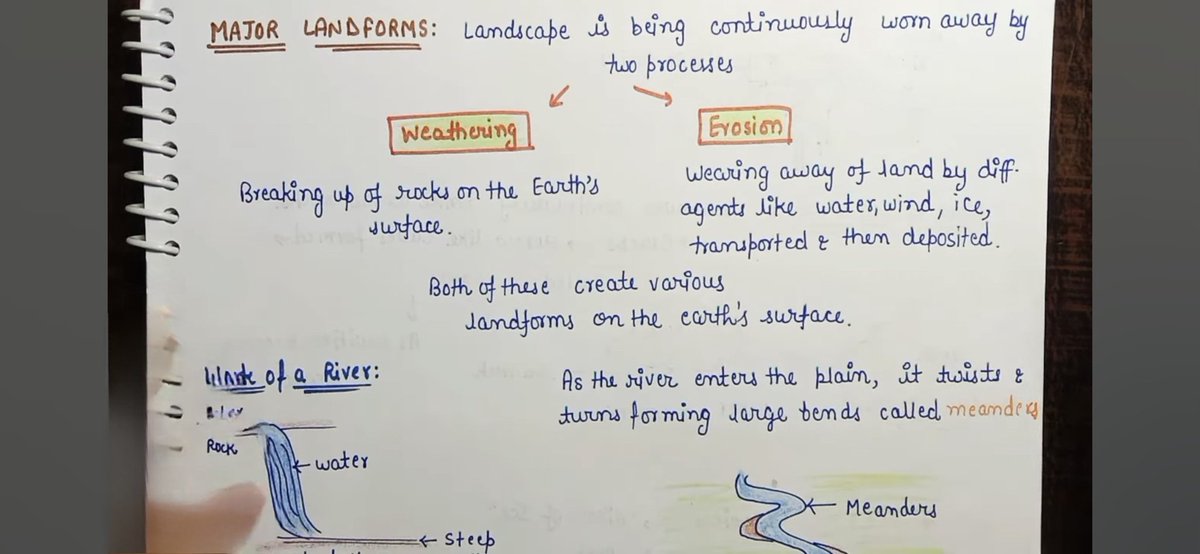 MAJOR LANDFORMS: Landscape is being continuously worn away by
two processes
Weathering
Erosion
Breaking up of rocks on the Earth's
surface.
Wearing away of land by diff.
agents like water, wind, ice,
transported & then deposited.
Both of these create various
landforms on the earth's surface.
Work of a River:
As the river enters the plain, it twists &
turns forming large bends called meanders
Rock
water
Meanders
Steep